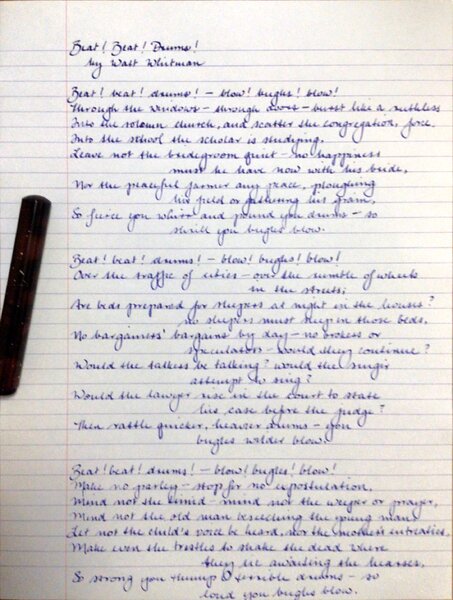 Beat! Beat! Drums!
by Walt Whitman
Beat! beat! drums! – blow! bugles! blow!
Through the windows – through doors – burst like a ruthless
Into the solemn church, and scatter the congregation, force.
Into the school the scholar is studying,
Leave not the bridegroom quiet – no happiness
must he have now with his bride,
Nor the peaceful farmer any peace, ploughing
his field or gathering his grain,
So fierce you whirr and pound you drums – so
shrill you bugles blow.
Beat! beat! drums! – blow! bugles! blow!
Over the traffic of cities – over the rumble of wheels
in the streets;
Are beds prepared for sleepers at night in the houses?
no sleepers must sleep in those beds,
No bargainers' bargains by day – no brokers or
speculators – would they continue?
Would the talkers be talking? would the singer
attempt to sing?
Would the lawyer rise in the court to state
his case before the judge?
Then rattle quicker, heavier drums – you
bugles wilder blow.
Beat! beat! drums! – blow! bugles! blow!
Make no parley – stop for no expostulation,
Mind not the timid – mind not the weeper or prayer,
Mind not the old man beseeching the young man,
Let not the child's voice be heard, nor the mother's entreaties,
Make even the trestles to shake the dead where
they lie awaiting the hearses,
So strong you thump O terrible drums – so
loud you bugles blow.